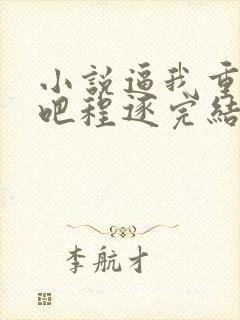 小説逼我重
吧程逐完結
李航才